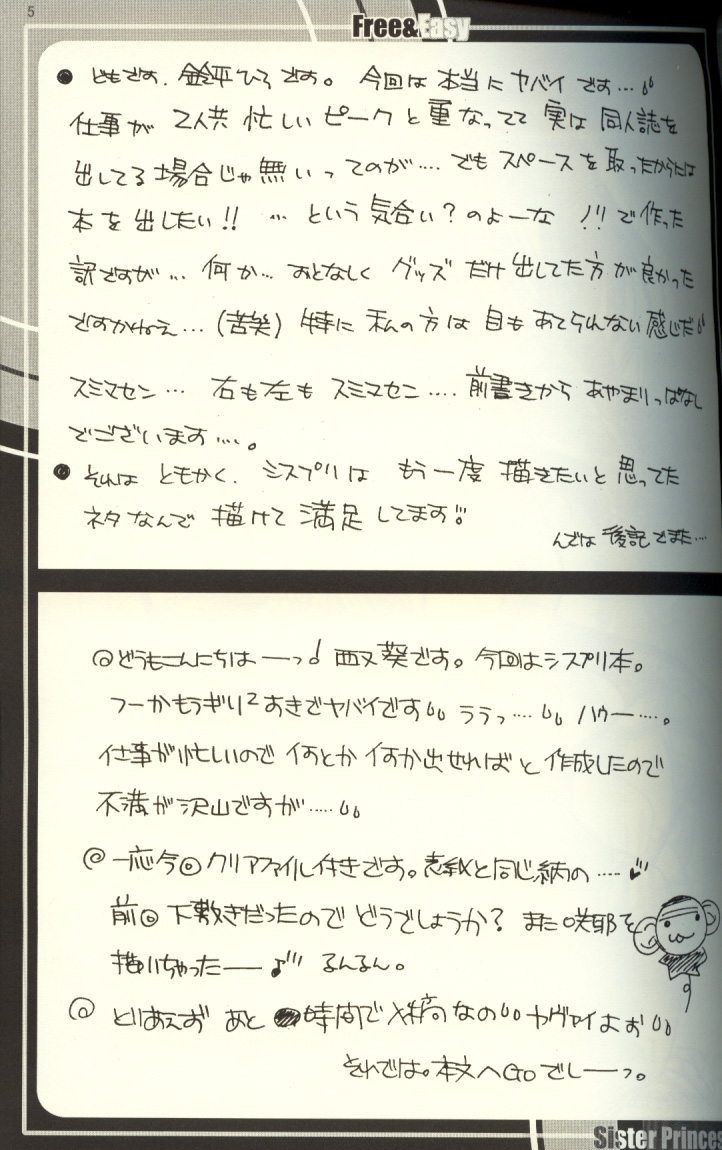 5
Free&Easy
● ども です. 鈴平ひろ です。 今回は 本当に ヤバイ です…
仕事が 2人共 忙しい ピークと 重なってて 実は 同人誌を
出してる 場合じゃ 無い ってのが…. でも スペースを 取ったからには
本を 出したい!! … という 気合い?のよーな ノリで 作った
訳ですが… 何か… おとなしく グッズ だけ 出してた方が 良かった
ですかねぇ…(苦笑) 特に 私の方は 目も あてられない 感じだ
スミマセン… 右も左も スミマセン…. 前書きから あやまりっぱなし
でございます…。
● それは ともかく. シスプリは もう一度 描きたいと 思ってた
ネタ なんで 描けて 満足 してます!!
んでは 後記でまた…
@どうもこんにちは ーっ♪ 西又葵です。 今回はシスプリ本。
つーかもうギリ2 すぎでヤバイです ううっ…. ハウー….。
仕事が忙しいので 何とか 何か出せればと 作成したので
不満が沢山ですが…..
@ 一応今回 クリアファイル付きです。表紙と同じ柄の ….
前回 下敷きだったので どうでしょうか? また 咲耶を
描いちゃったー♪ るんるん。
@ とりあえず あと 時間で 入稿 なの ヤヴァイよぉ
それでは。本文へGoでしーっ。
Sister Princes